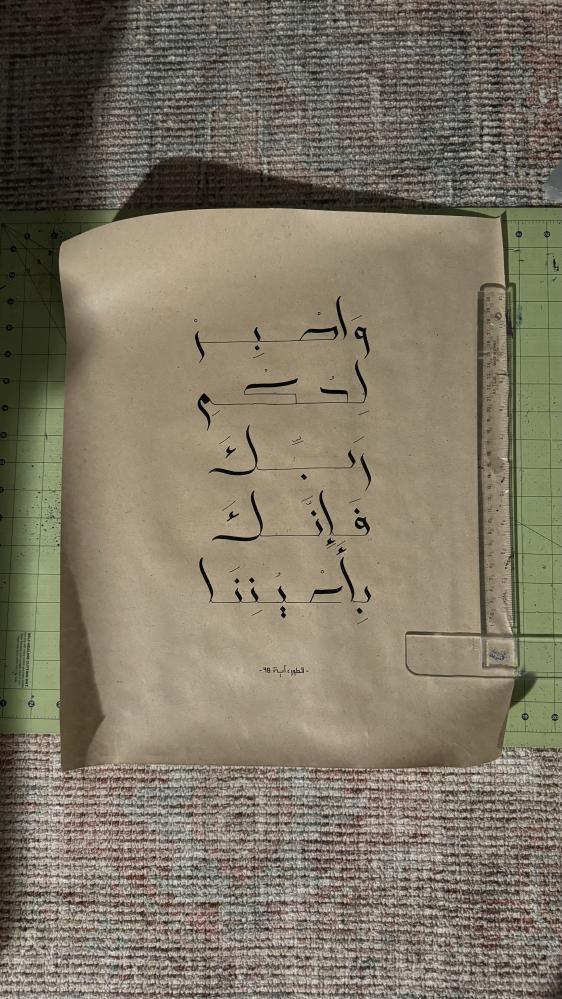 وَاصْبِرْ
لِحُكْمِ
رَبِّكَ
فَإِنَّكَ
بِأَعْيُنِنَا
-الطور، آية 48-